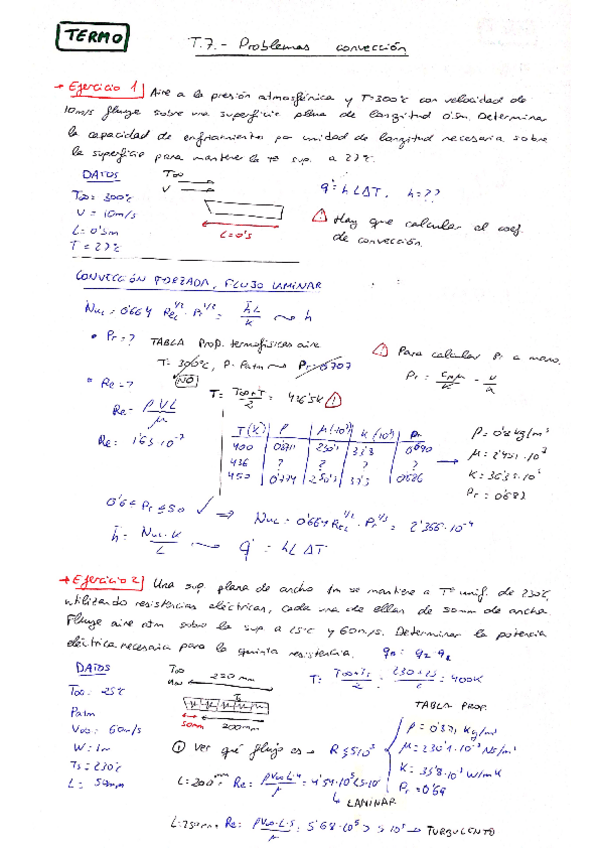 TERMO
T.7.- Problemas convección
→ Ejercicio 1] Aire a la presión atmosférica y T=300°C con velocidad de
10m/s fluye sobre una superficie plana de longitud 0'5m. Determinar
la capacidad de enfriamiento por unidad de longitud necesaria sobre
la superficie para mantener la tª sup. a 27°C.
DATOS
T∞ = 300°C
V = 10m/s
L = 0'5m
T = 27°C
T∞
V
L=0'5
q̇ = h L ΔT. h=??
Hay que calcular el coef.
de convección.
CONVECCIÓN FORZADA, FLUJO LAMINAR
Nu_L = 0'664 Re_L^1/2 · Pr^1/3 = h̄L/K → h
• Pr=? TABLA Prop. termofísicas aire
T: 300°C, P. Patm → Pr=0'707
NO
Para calcular Pr a mano.
Pr =
• Re=?
T = (T∞+T)/2 = 436'5K
Re = ρVL/μ
T(K) ρ μ(10⁷) K(10³) Pr
400 0'871 230'1 33'8 0'690
436 ? ? ? ?
450 0'774 250'7 37'3 0'686
ρ = 0'8 kg/m³
Pr = 0'687
0'6 ≤ Pr ≤ 50 ✓ ⇒ Nu_L = 0'664 Re_L^1/2 · Pr^1/3
h̄ = Nu_L·K/L → q̇ = hL ΔT
→ Ejercicio 2] Una sup. plana de ancho 1m se mantiene a Tª unif. de 230°C,
utilizando resistencias eléctricas, cada una de ellas de 50mm de ancho.
Fluye aire atm sobre la sup a 25°C y 60m/s. Determinar la potencia
eléctrica necesaria para la quinta resistencia.
DATOS
T∞ = 25°C
Patm
V∞ = 60m/s
W = 1m
Ts = 230°C
L = 50mm
T∞
Ts
50mm 200mm
T = (T∞+Ts)/2 = (230+25)/2 = 400K
TABLA PROP.
ρ = 0'871 Kg/m³
μ = 230'1·10⁻⁷ NS/m²
K = 33'8·10³ W/mK
Pr = 0'69
① Ver qué flujo es →
L=200mm Re =
↳ LAMINAR
Re = ρV∞·L5/μ = 5'68·10⁵ > 5·10⁵ → TURBULENTO